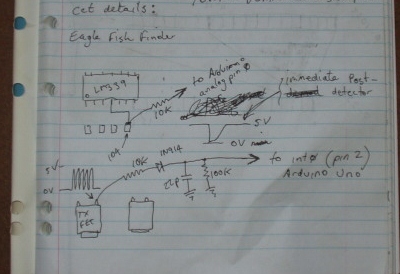 cct details:
Eagle Fish Finder
LM339
to Arduino
analog pin 0
10k
immediate post-
detector
5V
0V
104
10k
1N914
to int0 (pin 2)
Arduino Uno
5V
0V
22p
100k
TX
FET